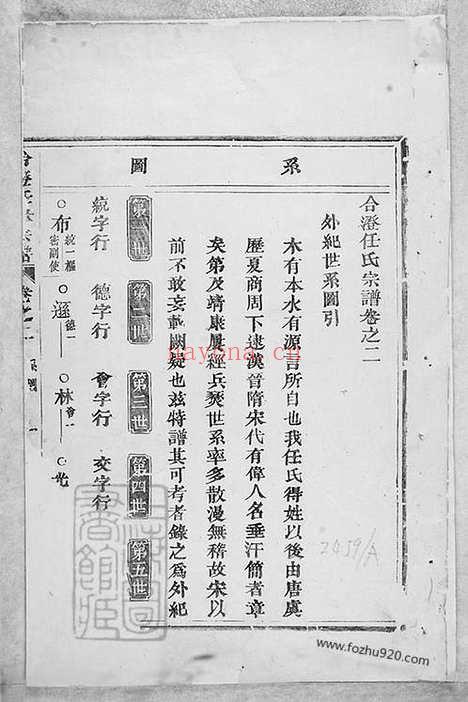 系圖
合澄任氏宗譜卷之二
外紀世系圖引
木有本水有源言所自也我任氏得姓以後由唐虞
歷夏商周下逮漢晉隋宋代有偉人名垂汗簡者章
矣第及靖康屢經兵燹世系率多散漫無稽故宋以
前不敢妄載闕疑也玆特譜其可考者錄之爲外紀
第一世 第二世 第三世 第四世 第五世
統字行 德字行 會字行 交字行
布 統一樞密副使 遜 德一 林 會一
卷之二
nayona.cn
2459/A
www.fozhu920.com